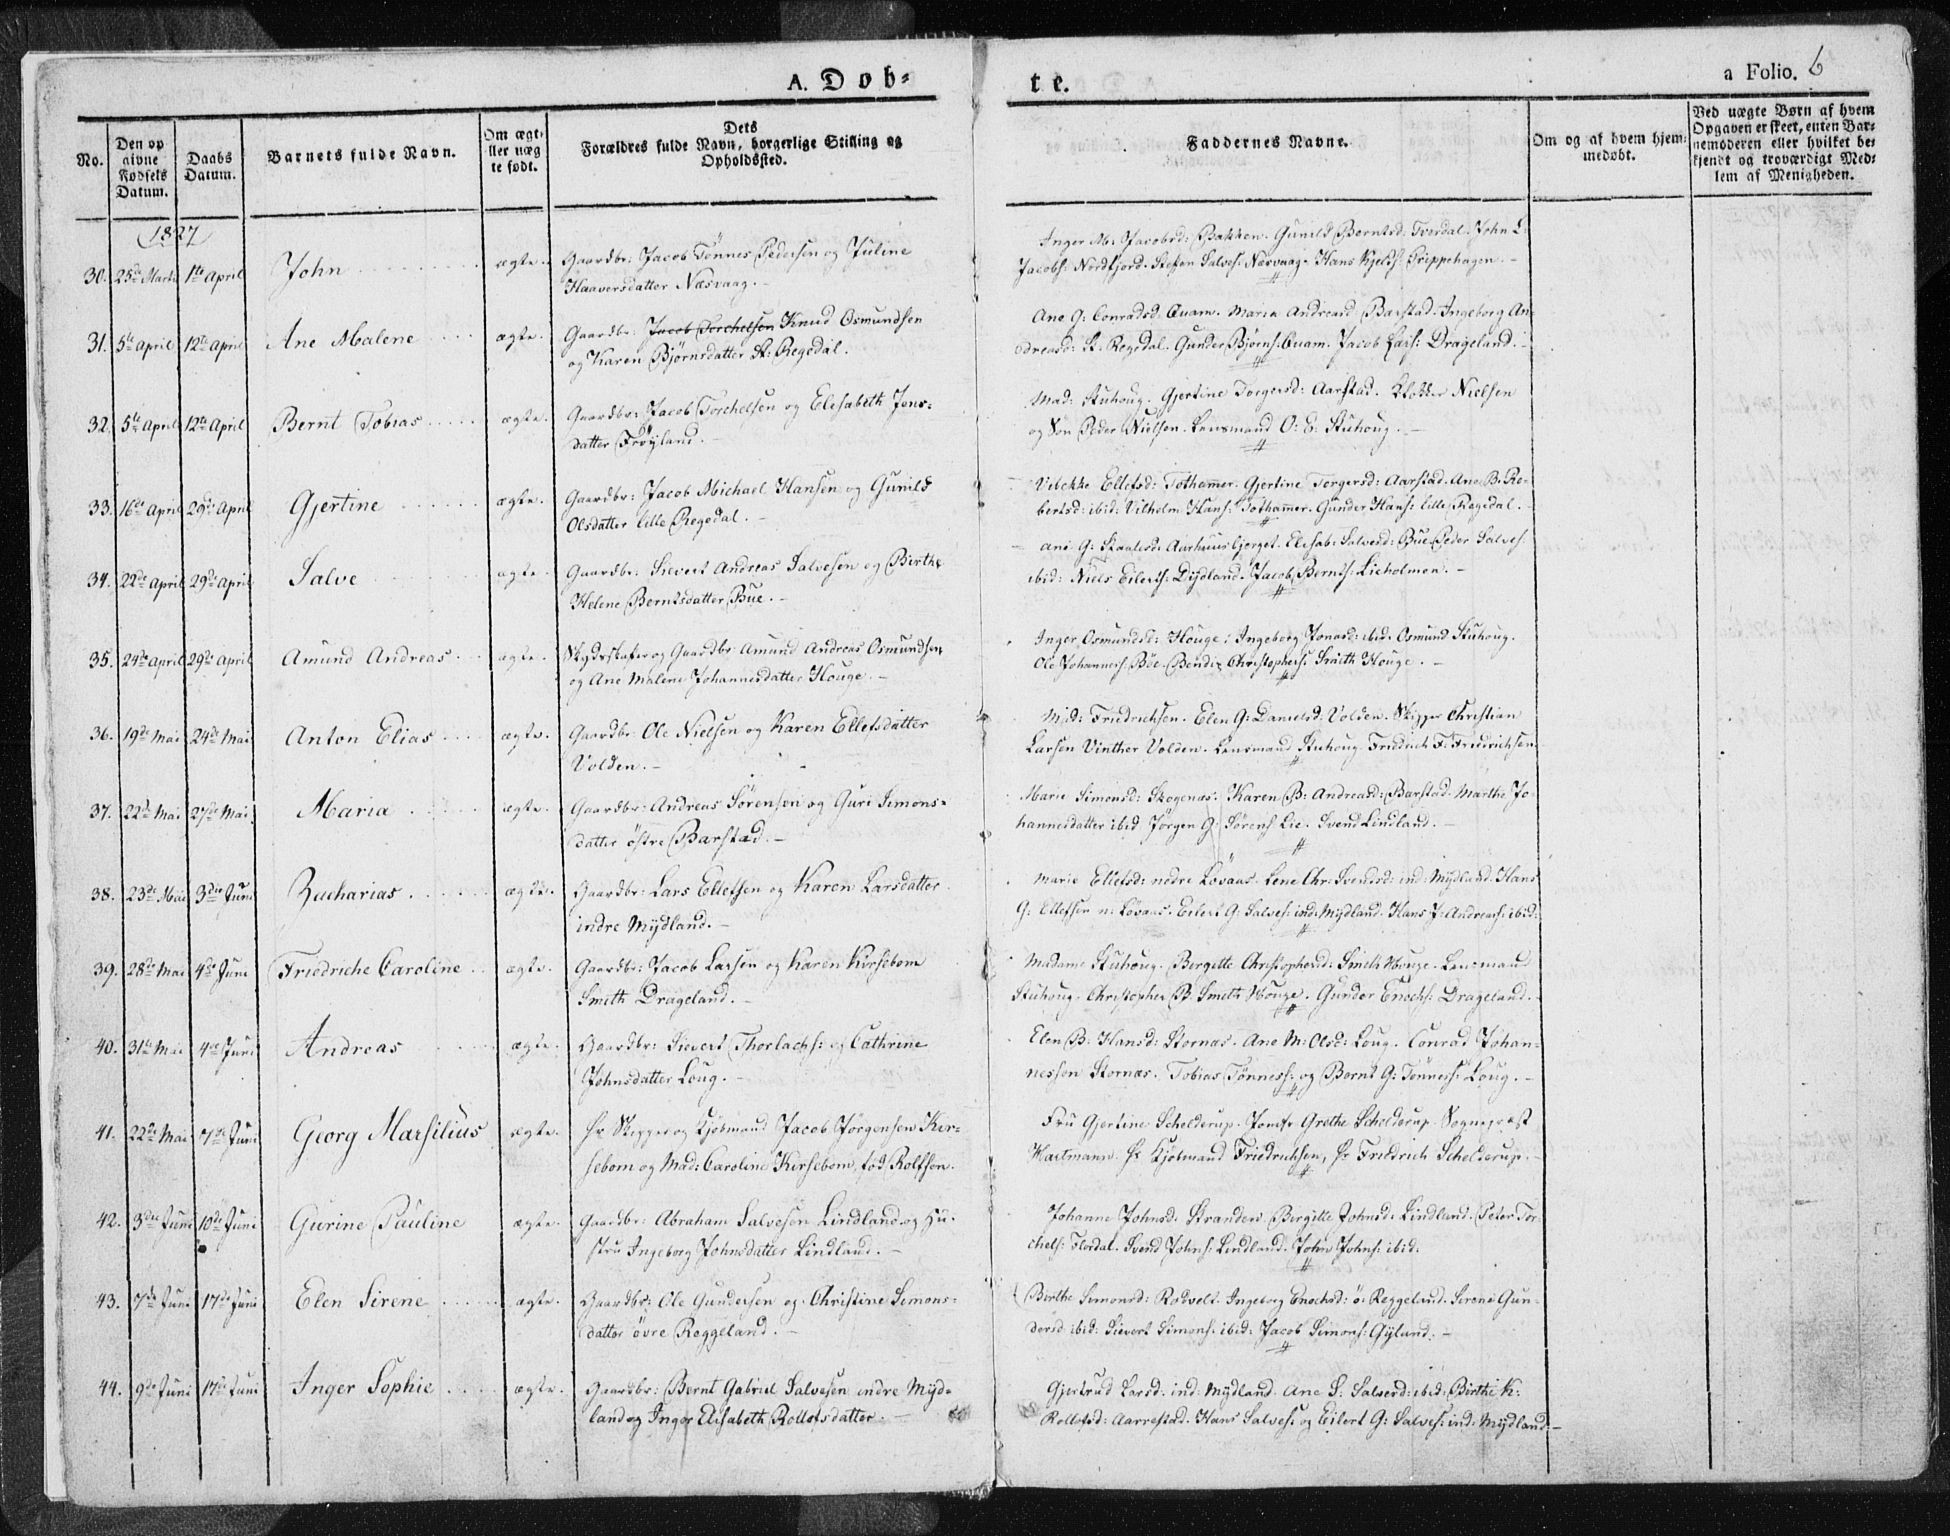 A. Døb-
te.
a Folio. 6
No.
Den opgivne Fødsels Datum.
Daabs Datum.
Barnets fulde Navn.
Om ægteller uægte født.
Dets Forældres fulde Navn, borgerlige Stilling og Opholdssted.
Faddernes Navne.
Om og af hvem hjemmedøbt.
Ved uægte Børn af hvem Opgaven er skeet, enten Barnemoderen eller hvilket bekjendt og troværdigt Medlem af Menigheden.
1827
30. 25de Marts 1ste April John ægte. Gaardbr: Jacob Tønnes Pedersen og Juline
Haaversdatter Næsvaag.
Inger M: Jacobsd: Bakken. Gunild Berntsd: Tverdal. John L:
Jacobs: Nordfjord. Stefen Salves: Næsvaag. Hans Kjelds: Trippehagen.
31. 5te April 12te April Ane Malene ægte. Gaardbr: Jacob Torchelsen Knud Osmundsen
og Karen Bjørnsdatter St: Regedal.
Ane G: Conradsd: Quam. Maria Andreasd: Barstad. Ingeborg An-
dreasd: St. Regedal. Gunder Bjørns: Quam. Jacob Lars: Drageland.
32. 5te April 12te April Bernt Tobias ægte. Gaardbr: Jacob Torchelsen og Elisabeth Jons-
datter Frøyland.
Mad: Stuhoug. Gjertine Torgersd: Aarstad. Klokker Nielsen
og Søn Peder Nielsen. Lensmand O: E: Stuhoug.
33. 16de April 29de April Gjertine ægte. Gaardbr: Jacob Michael Hansen og Gunild
Olsdatter lille Regedal.
Vibekke Ellefsd: Tothamer. Gjertine Torgersd: Aarstad. Ane B. Ro-
bertsd: ibid: Vilhelm Hans: Tothamer. Gunder Hans: lille Regedal.
34. 22de April 29de April Salve ægte. Gaardbr: Sievert Andreas Salvesen og Birthe
Helene Berntsdatter Bue.
Ane G: Staalesd: Aarhuusbjerget. Elisab: Salvesd: Bue. Peder Salves:
ibid: Niels Eilerts: Dydland. Jacob Bernts: Lieholmen.
35. 24de April 29de April Amund Andreas ægte. Skydsskafer og Gaardbr: Amund Andreas Osmundsen
og Ane Malene Johannesdatter Houge.
Inger Osmundsd: Houge. Ingeborg Jonasd: ibid. Osmund Stuhoug.
Ole Johanness: Bøe. Bendix Christophers: Smith Houge.
36. 19de Mai 24de Mai Anton Elias ægte. Gaardbr: Ole Nielsen og Karen Ellefsdatter
Volden.
Mad: Friedrichsen. Elen G: Danielsd: Volden. Skipper Christian
Larsen Vinther Volden. Lensmand Stuhoug. Friedrich F: Friedrichsen.
37. 22de Mai 27de Mai Maria ægte. Gaardbr: Andreas Sørensen og Guri Simons-
datter østre Barstad.
Marie Simonsd: Skogenæs. Karen B: Andreasd: Barstad. Marthe Jo-
hannesdatter ibid Jørgen G: Sørens: Lie. Svend Lindland.
38. 23de Mai 3die Juni Zacharias ægte. Gaardbr: Lars Ellefsen og Karen Larsdatter
indre Mydland.
Marie Ellefsd: nedre Løvaas. Lene Chr: Svendsd: ind: Mydland. Hans
G: Ellefsen n: Løvaas. Eilert G: Salves: ind: Mydland. Hans J: Andreas: ibid:
39. 28de Mai 4de Juni Friedriche Caroline ægte. Gaardbr: Jacob Larsen og Karen Kirsebom
Smith Drageland.
Madame Stuhoug. Bergitte Christophersd: Smith Houge. Lensmand
Stuhoug. Christopher B. Smith Houge. Gunder Enochs: Drageland.
40. 31te Mai 4de Juni Andreas ægte. Gaardbr: Sievert Thorlachs: og Cathrine
Johnsdatter Loug.
Elen B: Hansd: Stornæs. Ane M: Olsd: Loug. Conrad Johan-
nessen Stornæs. Tobias Tønness: og Bernt G: Tønness: Loug.
41. 22de Mai 7de Juni Georg Marsilius ægte. Hr Skipper og Kjøbmand Jacob Jørgensen Kir-
sebom og Mad: Caroline Kirsebom, fød Rolfsen.
Fru Gjertine Schelderup. Jomfr Grethe Schelderup. Sognepræst
Hartmann. Hr Kjøbmand Friedrichsen, Hr Fredrich Schelderup.
42. 3die Juni 10de Juni Gurine Pauline ægte. Gaardbr: Abraham Salvesen Lindland og Hu-
stru Ingeborg Johnsdatter Lindland.
Johanne Johnsd: Stranden. Birgitte Johnsd: Lindland. Peter Tor-
chels: Flordal. Svend Johns: Lindland. John Johns: ibid:
43. 7de Juni 17de Juni Elen Sirene ægte. Gaardbr: Ole Gundersen og Christine Simons-
datter øvre Reggeland.
Birthe Simonsd: Rødvelt. Ingeborg Enochsd: ø: Reggeland. Sirene Gun-
dersd: ibid: Sievert Simons: ibid: Jacob Simons: Gyland.
44. 9de Juni 17de Juni Inger Sophie ægte. Gaardbr: Bernt Gabriel Salvesen indre Myd-
land og Inger Elisabeth Rollofsdatter.
Gjertrud Larsd: ind: Mydland. Ane S: Salvesd: ibid: Birthe K:
Rollofsd: Aarrestad. Hans Salves: og Eilert G: Salves: ind: Mydland.